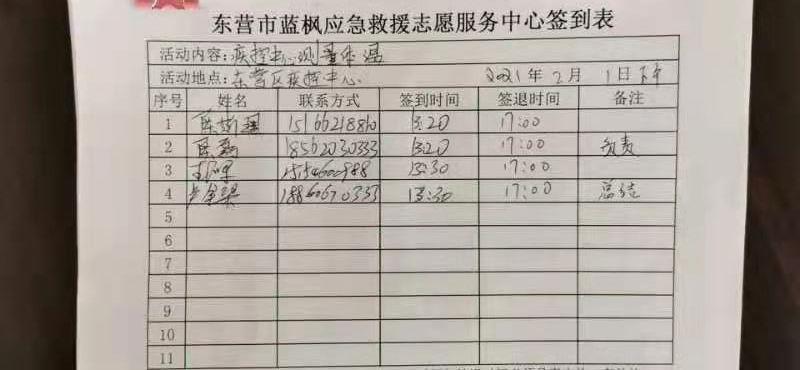 东营市蓝枫应急救援志愿服务中心签到表
活动内容:疾控中心测量体温
活动地点:东营区疾控中心 2021年 2月 1日 下午
序号 姓名 联系方式 签到时间 签退时间 备注
1 15166218810 13:20 17:00
2 18562030333 13:20 17:00 负责
3 13:30 17:00
4 18860670333 13:30 17:00 总结
5
6
7
8
9
10
11